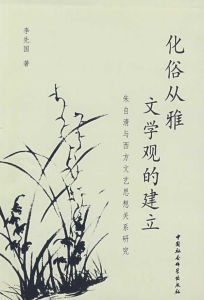 李先国 著
化俗从雅
文学观的建立
朱自清与西方文艺思想关系研究
中国社会科学出版社